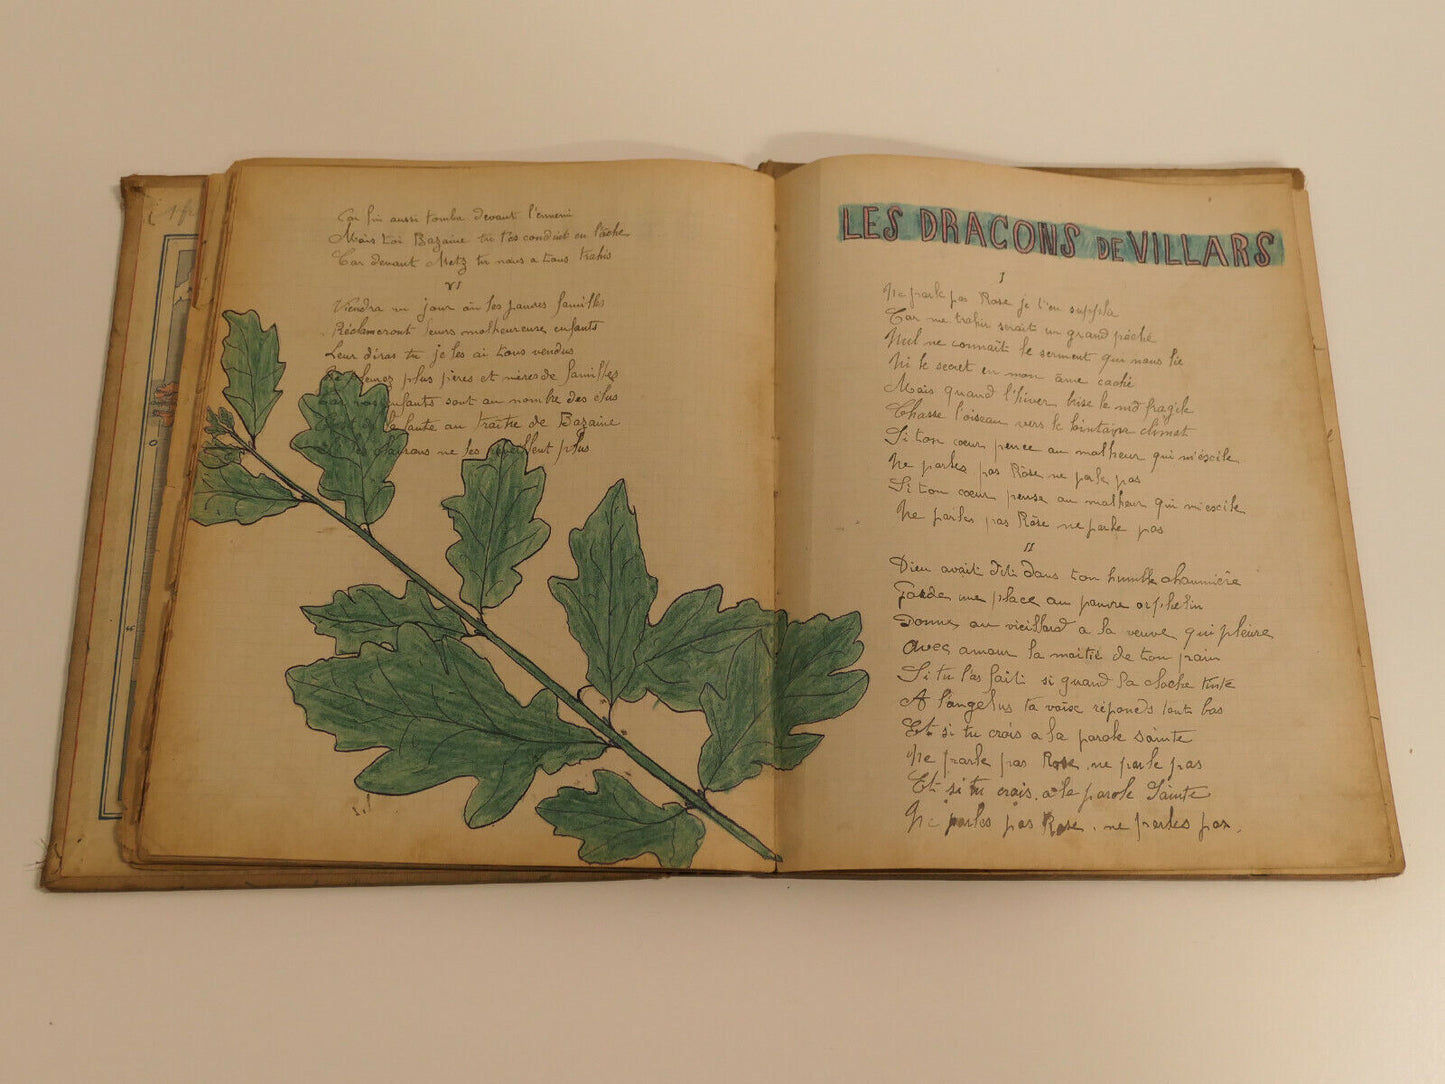 Car fin aussi tomba devant l'ennemi
Mais toi Bazaine tu t'es conduit en lâche
Car devant Metz tu nous a tous trahis
VI
Viendra un jour où les pauvres familles
Réclameront leurs malheureuse enfants
Leur diras tu je les ai tous vendus
Ne pleurez plus pères et mères de familles
Car vos enfants sont au nombre des élus
la faute au traître de Bazaine
les clairons ne les réveillent plus
LES DRACONS DE VILLARS
I
Ne parle pas Rose je t'en suppla
Car me trahir serait un grand péché
Nul ne connaît le serment qui nous lie
Ni le secret en mon âme caché
Mais quand l'hiver brise le nid fragile
Chasse l'oiseau vers le lointain climat
Si ton cœur pense au malheur qui m'éxcile
Ne parles pas Rose ne parle pas
Si ton cœur pense au malheur qui m'excile
Ne parles pas Rose ne parle pas
II
Dieu avait dit dans ton humble chaumière
Garde une place au pauvre orphelin
Donne au vieillard a la veuve qui pleure
Avec amour la moitié de ton pain
Si tu l'as fait si quand la cloche tinte
A l'angelus ta voix réponds tout bas
Et si tu crois a la parole sainte
Ne parle pas Rose ne parle pas
Et si tu crois a la parole Sainte
Ne parles pas Rose . ne parles pas .